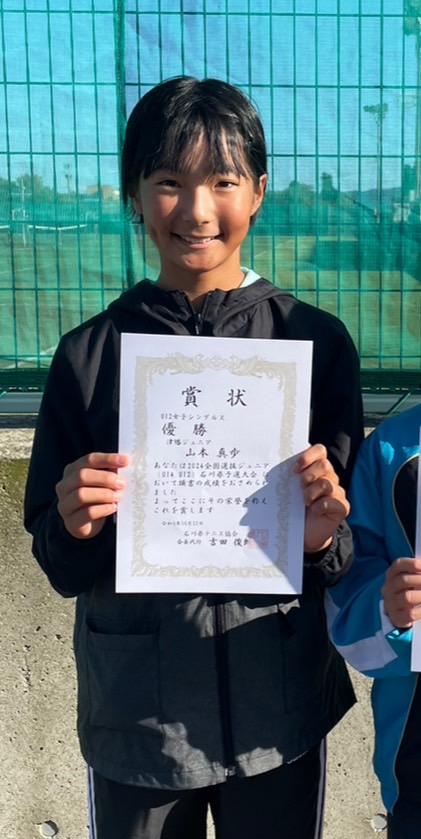 賞状
U12女子シングルス
優勝
津幡ジュニア
山本 真歩
あなたは2024全国選抜ジュニア
(U14 U12)石川県予選大会に
おいて頭書の成績をおさめられ
ました
よってここにその栄誉を称え
これを賞します
石川県テニス協会
会長代行 吉田